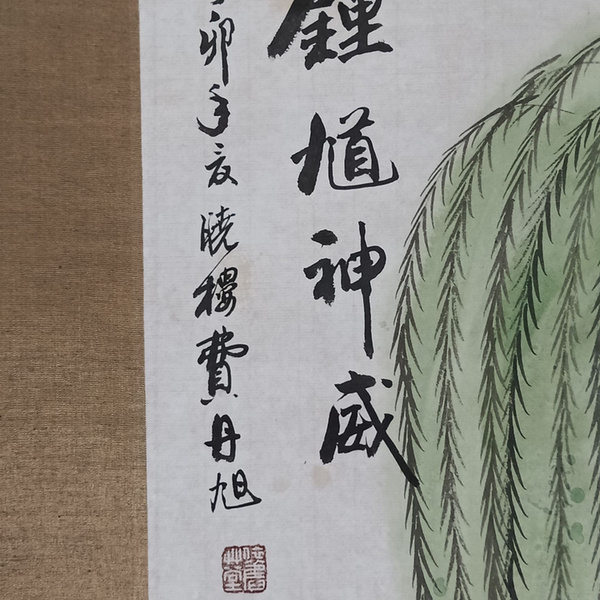 鍾馗神威
卯年夏曉樓費丹旭